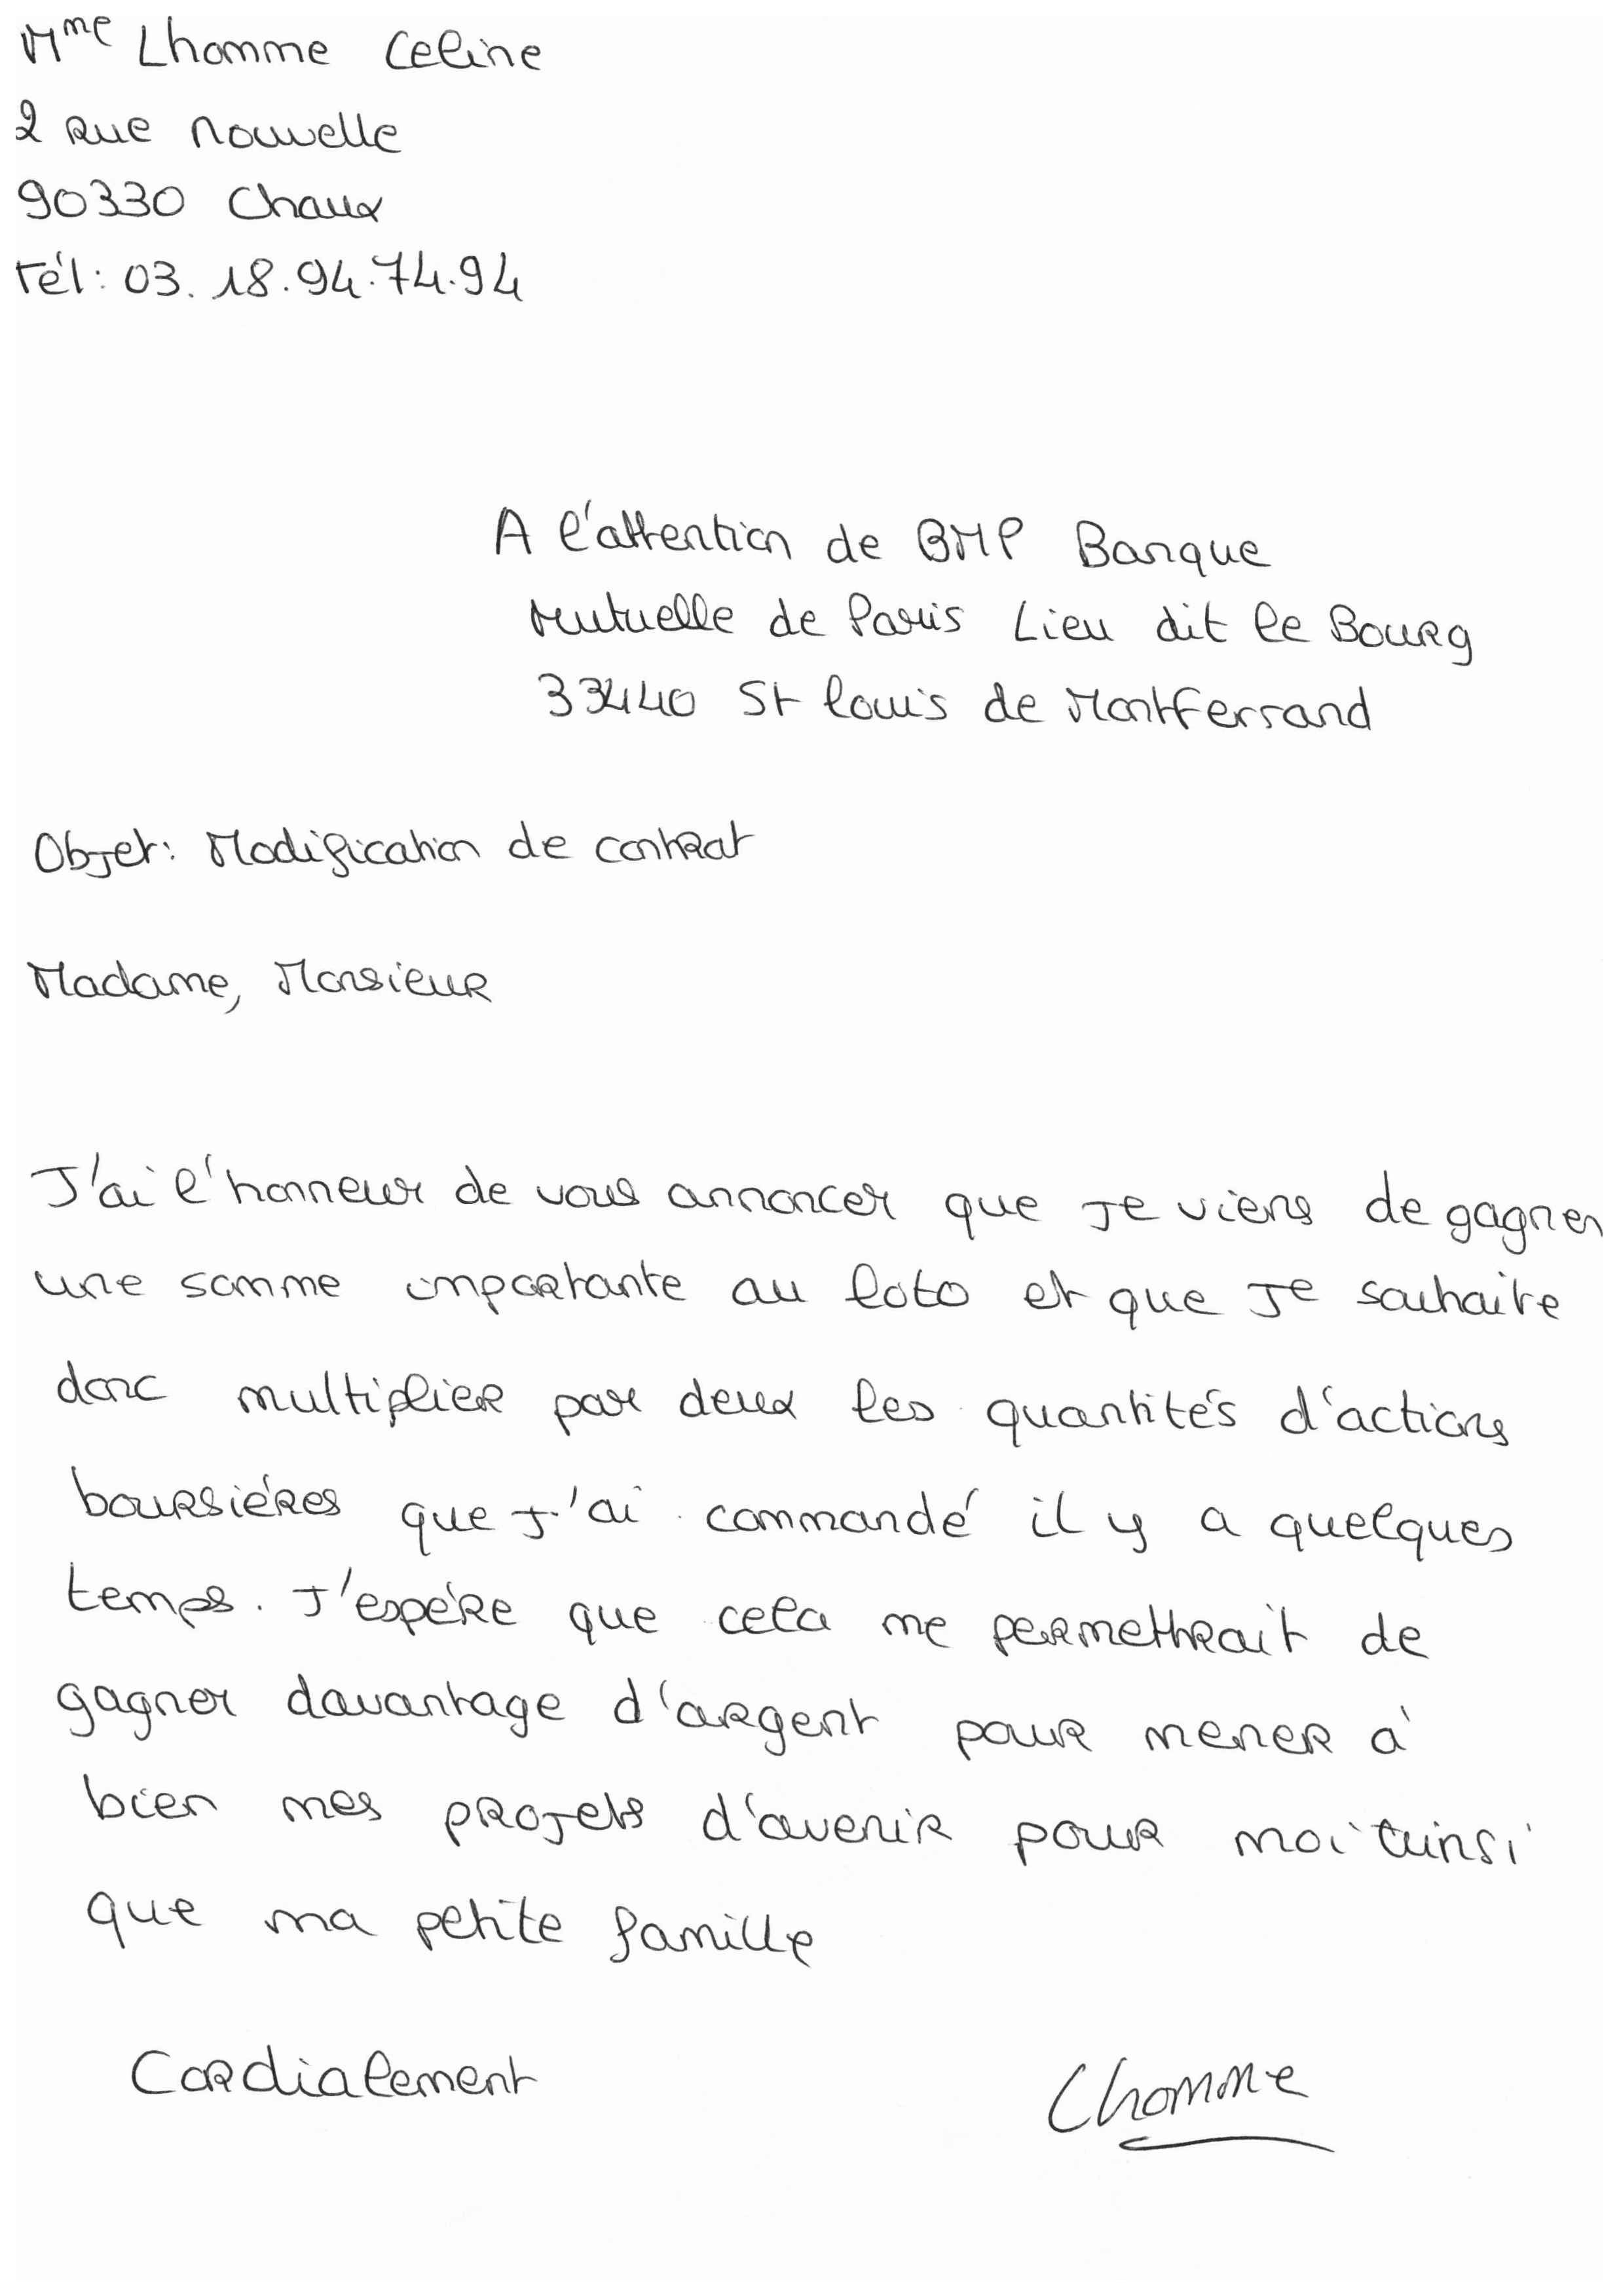 Mme Lhomme Celine
2 Rue nouvelle
90330 Chaux
Tél: 03.18.94.74.94
A l'attention de BMP Banque
Mutuelle de Paris Lieu dit le Bourg
33440 St louis de Montferrand
Objet: Modification de contrat
Madame, Monsieur
J'ai l'honneur de vous annoncer que je viens de gagner
une somme importante au loto et que je souhaite
donc multiplier par deux les quantités d'actions
boursiéres que j'ai commandé il y a quelques
temps. J'espére que cela me permettrait de
gagner davantage d'argent pour mener à
bien mes projets d'avenir pour moi ainsi
que ma petite famille
Cordialement
Lhomme